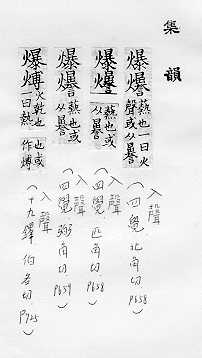 集韻
爆㿺 爇也一曰火聲或从㬥
入聲
(四覺 北角切 P658)
爆㿺 爇也或从㬥
入聲
(四覺 匹角切 P658)
爆㿺 爇也或从㬥
入聲
(四覺 弼角切 P659)
爆煿 火乾也一曰熱也或作煿
入聲
(十九鐸 伯各切 P725)